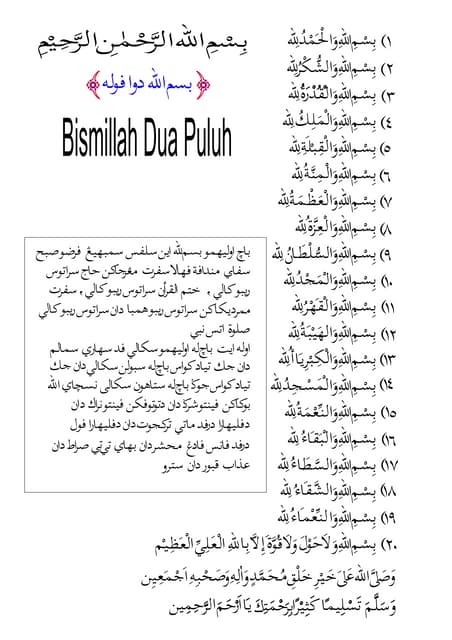 بِسْمِ اللهِ الرَّحْمٰنِ الرَّحِيْمِ
﴿ بسم الله دوا فوله ﴾
Bismillah Dua Puluh
باچ اوليهمو بسم الله اين سلفس سمبهيڠ فرضو صبح
سفاي مندافة فهلا سفرت مڠرجاكن حاج سراتوس
ريبو كالي , ختم القرأن سراتوس ريبو كالي , سفرت
ممرديكاكن سراتوس ريبو همبا دان سراتوس ريبو كالي
صلوة اتس نبي
اوله ايت باچ له اوليهمو سكالي فد سهاري سمالم
دان جك تياد كواس باچ له سبولن سكالي دان جك
تياد كواس جوڬ باچ له ستاهون سكالي نسچاي الله
بوكاكن فينتو شرڬ دان دتوتوفكن فينتو نرك دان
دفليهارا درفد ماتي تركجوت دان دفليهارا فول
درفد فانس فادڠ محشر دان بهاي تيتي صراط دان
عذاب قبور دان سترو
١) بِسْمِ اللهِ وَالْحَمْدُ لِلّٰهِ
٢) بِسْمِ اللهِ وَالشُّكْرُ لِلّٰهِ
٣) بِسْمِ اللهِ وَالْقُدْرَةُ لِلّٰهِ
٤) بِسْمِ اللهِ وَالْمَلِكُ لِلّٰهِ
٥) بِسْمِ اللهِ وَالْقِبْلَةُ لِلّٰهِ
٦) بِسْمِ اللهِ وَالْمِنَّةُ لِلّٰهِ
٧) بِسْمِ اللهِ وَالْعَظْمَةُ لِلّٰهِ
٨) بِسْمِ اللهِ وَالْعِزَّةُ لِلّٰهِ
٩) بِسْمِ اللهِ وَالسُّلْطَانُ لِلّٰهِ
١٠) بِسْمِ اللهِ وَالْمَجْدُ لِلّٰهِ
١١) بِسْمِ اللهِ وَالْقَهْرُ لِلّٰهِ
١٢) بِسْمِ اللهِ وَالْهَيْبَةُ لِلّٰهِ
١٣) بِسْمِ اللهِ وَالْكِبْرِيَاءُ لِلّٰهِ
١٤) بِسْمِ اللهِ وَالْمَسْجِدُ لِلّٰهِ
١٥) بِسْمِ اللهِ وَالنِّقْمَةُ لِلّٰهِ
١٦) بِسْمِ اللهِ وَالْبَقَاءُ لِلّٰهِ
١٧) بِسْمِ اللهِ وَالسَّطَاءُ لِلّٰهِ
١٨) بِسْمِ اللهِ وَالشَّقَاءُ لِلّٰهِ
١٩) بِسْمِ اللهِ وَالنِّعْمَاءُ لِلّٰهِ
٢٠) بِسْمِ اللهِ وَلَا حَوْلَ وَلَا قُوَّةَ إِلَّا بِاللهِ الْعَلِيِّ الْعَظِيْمِ
وَصَلَّى اللهُ عَلَى خَيْرِ خَلْقِ مُحَمَّدٍ وَاٰلِهِ وَصَحْبِهِ اَجْمَعِيْنَ
وَسَلَّمَ تَسْلِيمًا كَثِيْرًا بِرَحْمَتِكَ يَا اَرْحَمَ الرَّحِمِيْنَ